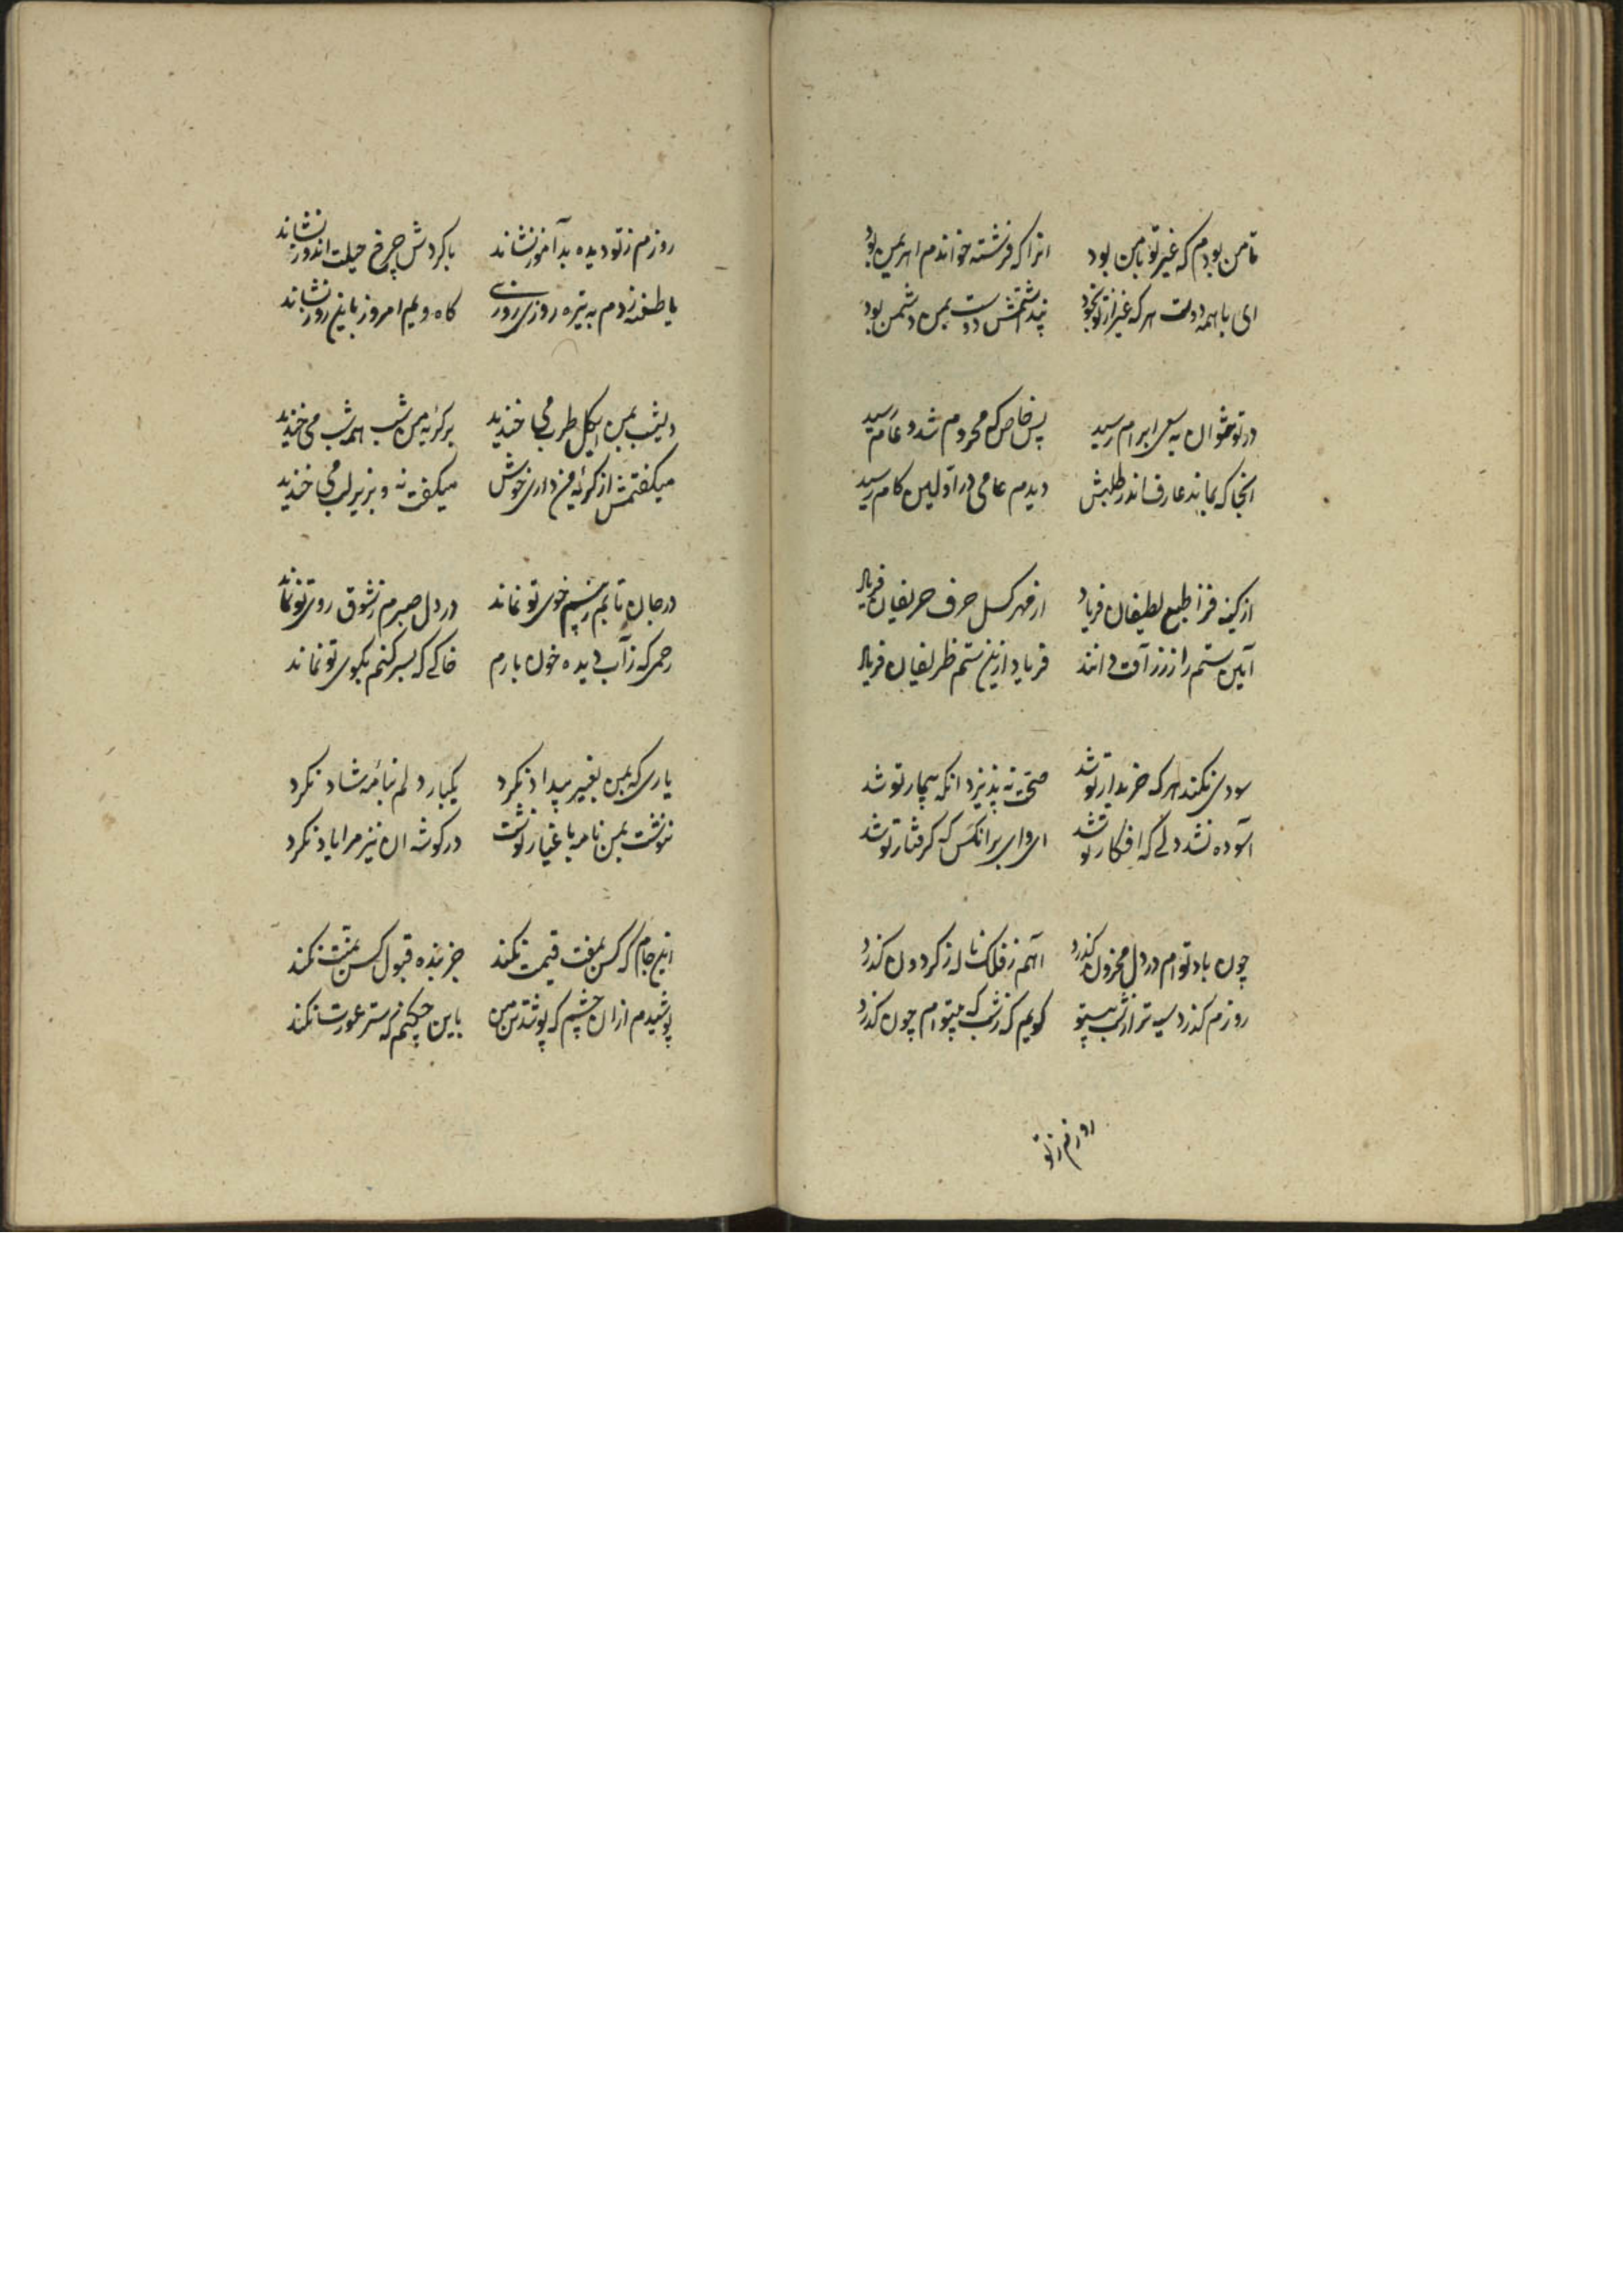 تا من بودم که غیر تو با من بود انرا که فرشته خواندم اهریمن بود
ای با همه دوست هر که غیر از تو بخود پنداشتمش دوست بمن دشمن بود
در تو نتوان به سعی ابرام رسید بس خاص که محروم شد و عام رسید
انجا که بماند عارف اندر طلبش دیدم عامی در اولین کام رسید
از کینه فزا طبع لطیفان فریاد از مهر کسل حرف حریفان فریاد
آیین ستم را ز زر آفت دانند فریاد ازین ستم ظریفان فریاد
سودی نکند هر که خریدار تو شد صحت نپذیرد انکه بیمار تو شد
آسوده نشد دلی که افکار تو شد ای وای بر انکس که کرفتار تو شد
چون یاد توام در دل محزون کذرد آهم ز فلک ناله ز کردون کذرد
روزم کذرد سیه تر از شب بیتو کویم که ز شب که بیتوام چون کذرد
روزم ز تو
روزم ز تو دیده بد آموز نشاند با کردش چرخ حیلت اندوز نشاند
یا طعنه زدم به تیره روزی روزی کاه ویم امروز باین روز نشاند
دیشب بمن ان کل طرب می خندید بر کریه من شب همه شب می خندید
میکفتمش از کریه من داری خوش میکفت نه و بزیر لب می خندید
در جان تابم ز بیم خوی تو نماند در دل صبرم ز شوق روی تو نماند
رحمی که ز آب دیده خون بارم خاکی که بسر کنم بکوی تو نماند
یاری که بمن بغیر بیداد نکرد یکبار دلم بنامه شاد نکرد
ننوشت بمن نامه باغیار نوشت در کوشه ان نیز مرا یاد نکرد
این جام که کس بمفت قیمت نکند جز بنده قبول کس بمنت نکند
پوشیدم از ان چشم که پوشند من با این چکنم که ستر عورت نکند